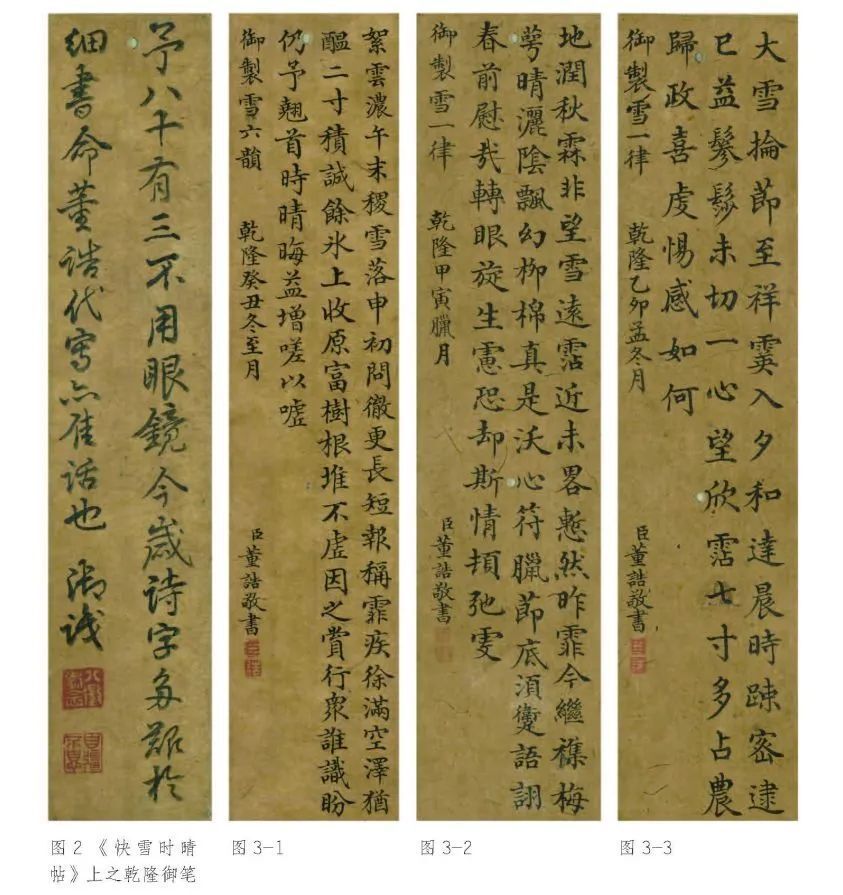 予八十有三不用眼鏡今歲詩字多艱於
細書命董誥代寫亦佳話也 御識
絮雲濃午末稷雪落申初問徹更長短報稱霏疾徐滿空澤猶
醖二寸積誠餘氷上收原富樹根堆不虛因之賞行衆誰識盼
仍予翹首時晴晦益增嗟以噓
御製雪六韻 乾隆癸丑冬至月 臣董誥敬書
地潤秋霖非望雪遠霑近未畧慙然昨霏今繼襍梅
萼晴灑陰飄幻柳棉真是沃心符臘節底須讆語詡
春前慰哉轉眼旋生慮恐却斯情頓弛虔
御製雪一律 乾隆甲寅臘月 臣董誥敬書
大雪掄節至祥霙入夕和達晨時疎密逮
已益鬖髿未切一心望欣霑七寸多占農
歸政喜虔惕感如何
御製雪一律 乾隆乙卯孟冬月 臣董誥敬書
图2 《快雪时晴
帖》上之乾隆御笔
图3-1
图3-2
图3-3